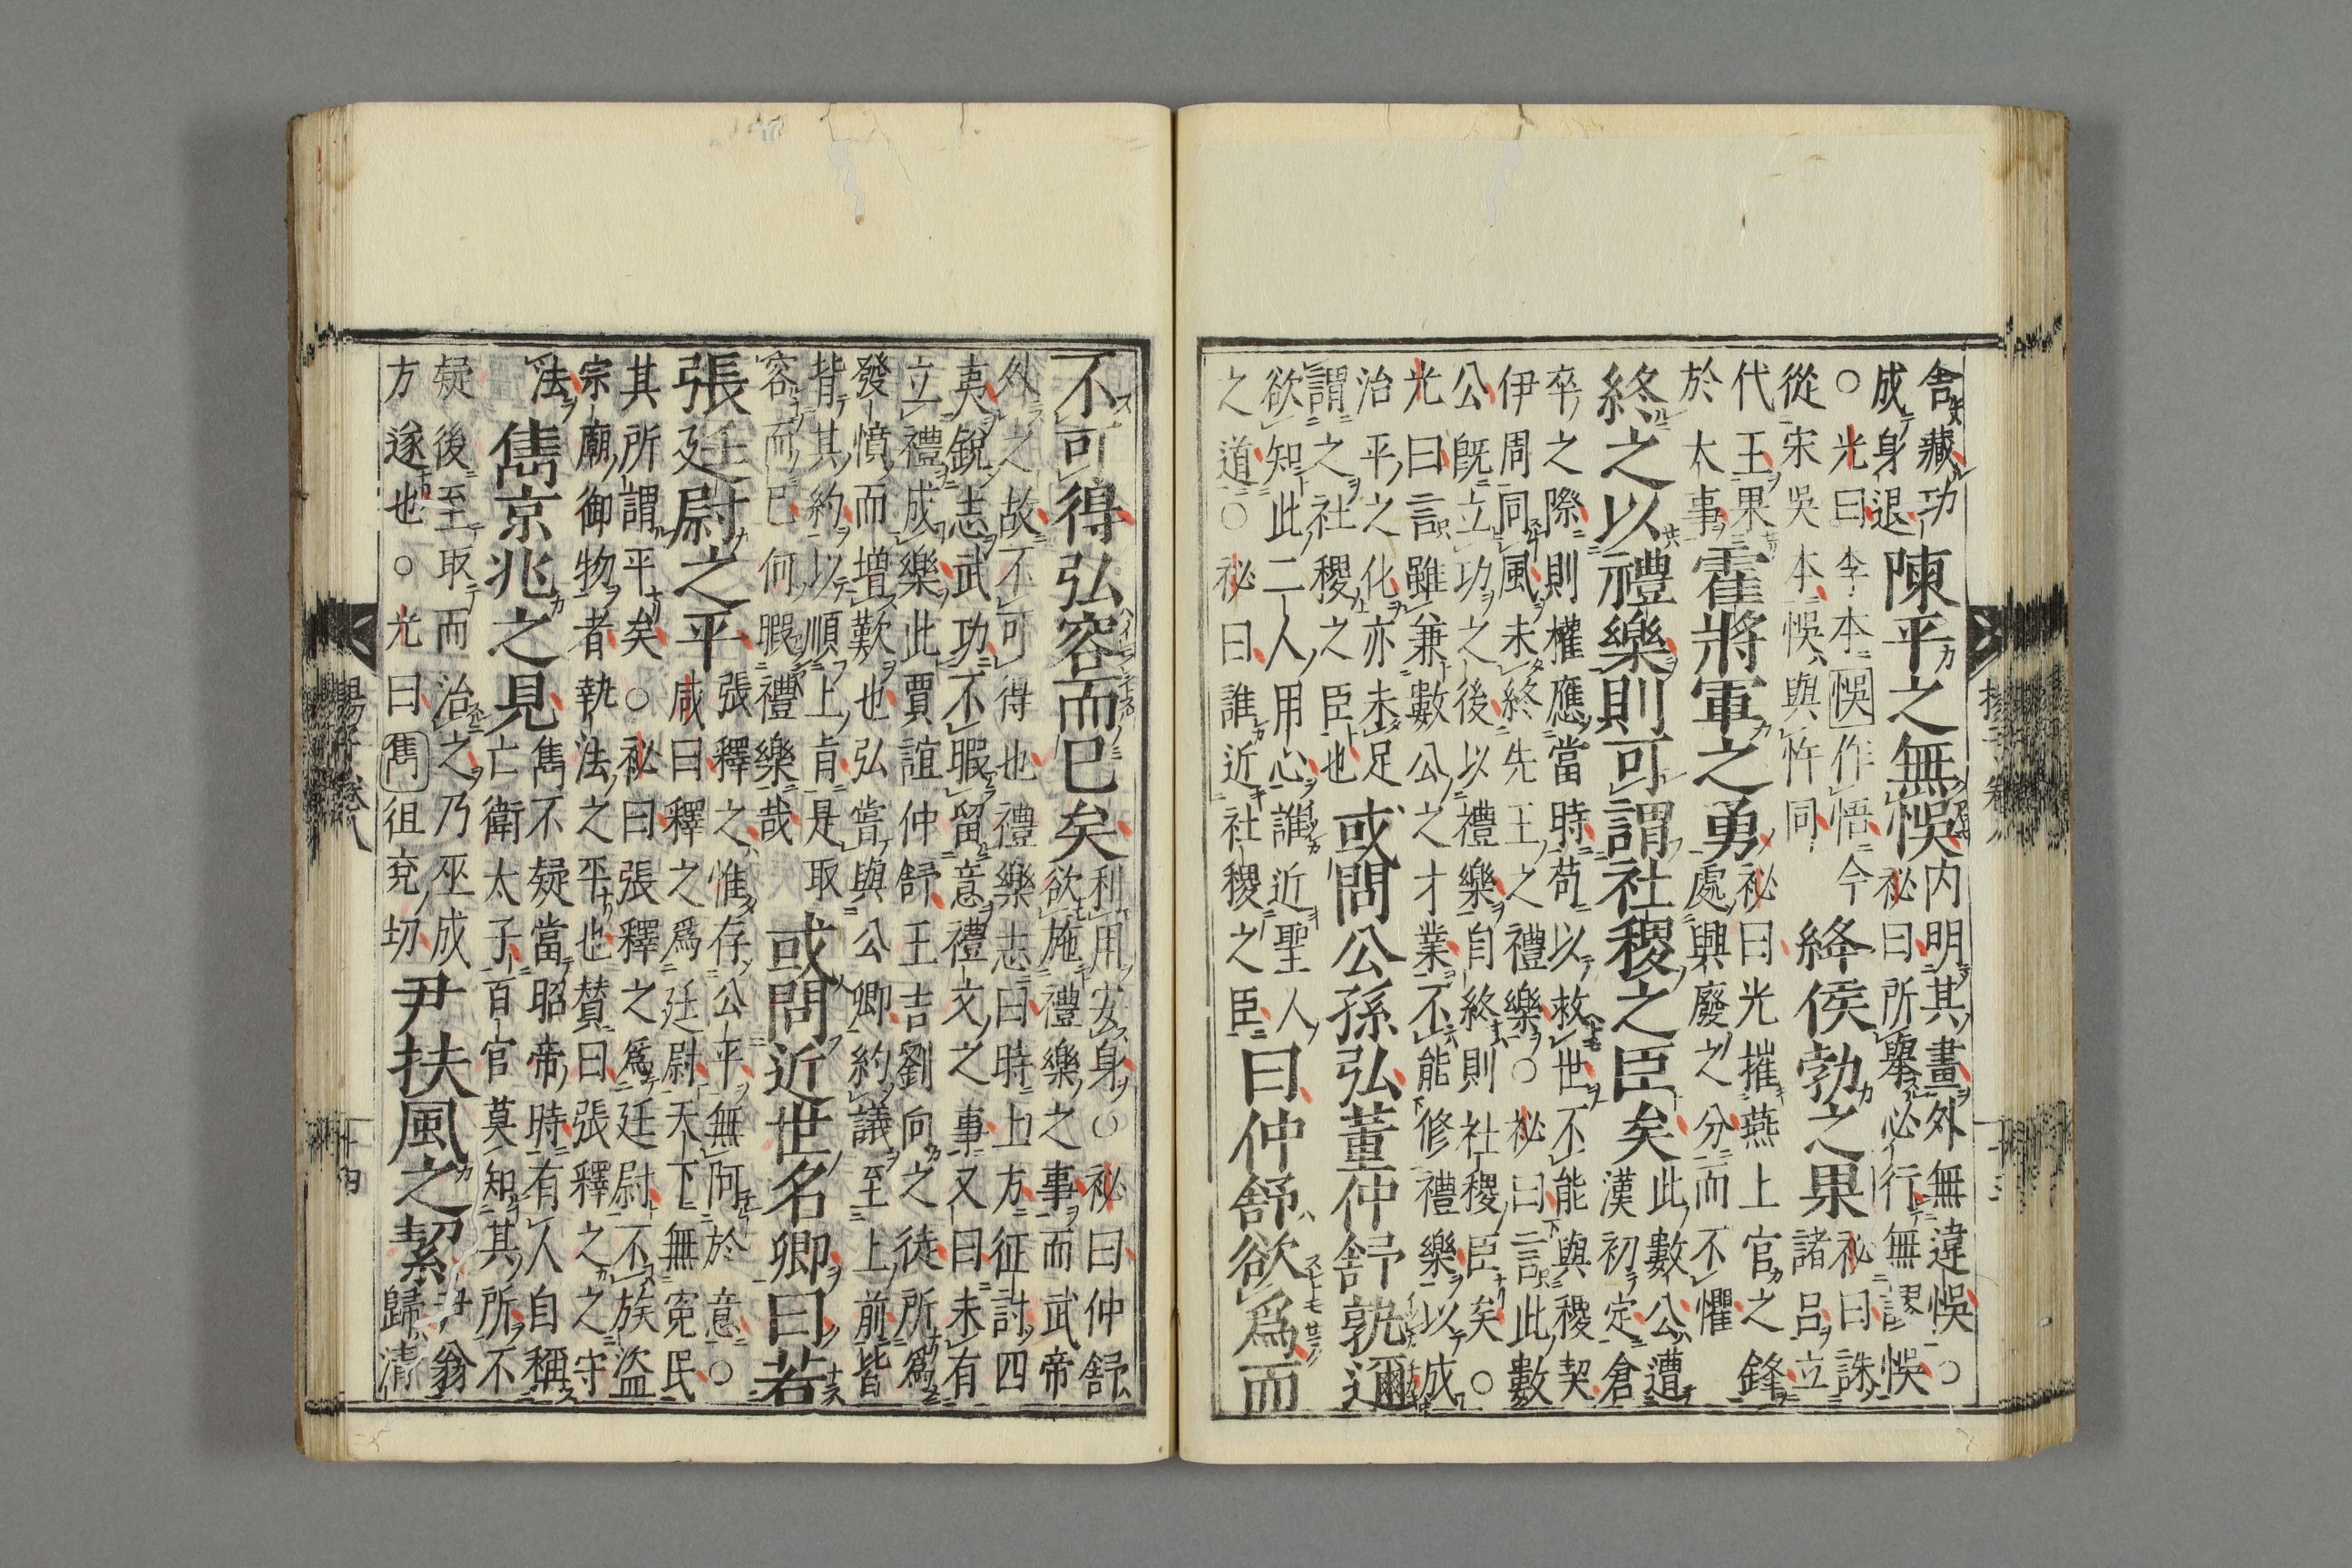 舍藏功
成身退
陳平之無悞
内明其畫外無違悞○
祕曰所舉必行無謬悞
○光曰李本悞作悟今
從宋吳本悞與忤同
絳侯勃之果
祕曰誅
諸呂立
代王果
於太事
霍將軍之勇
祕曰光摧燕上官之鋒
處興廢之分而不懼
終之以禮樂則可謂社稷之臣矣
此數公遭
漢初定倉
卒之際則權應當時苟以救世不能與稷契
伊周同風未終先王之禮樂○祕曰二言此數
公旣立功之後以禮樂自終則社稷臣矣○
光曰二言雖兼數公之才業不能修禮樂以成
治平之化亦未足
謂之社稷之臣也
或問公孫弘董仲舒孰邇
欲知此二人用心誰近聖人
之道○祕曰誰近社稷之臣
曰仲舒欲爲而
不可得弘容而已矣
利用安身○祕曰仲舒
欲施禮樂之事而武帝
外之故不可得也禮樂志曰時上方征討四
夷銳志武功不暇留意禮文之事又曰未有
立禮成樂此賈誼仲舒王吉劉向之徒所爲
發憤而增歎也弘嘗與公卿約議至上前皆
背其約以順上旨是取
容而已何暇禮樂哉
或問近世名卿曰若
張廷尉之平
張釋之惟存公平無阿於意○
咸曰釋之爲廷尉天下無寃民
其所謂平矣○祕曰張釋之爲廷尉不族盗
宗廟御物者執法之平也賛曰張釋之之守
法
雋京兆之見
雋不疑當昭帝時有人自稱
亡衛太子百官莫知其所不
疑後至取而治之乃巫成
方遂也○光曰雋徂兖切
尹扶風之絜
尹翁
歸清
揚子卷八
十四